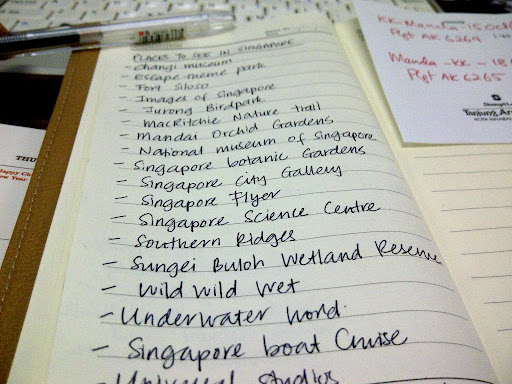 PLACES TO SEE IN SINGAPORE
- Changi museum
- Escape theme park
- Fort Siloso
- Images of Singapore
- Jurong Birdpark
- MacRitchie Nature trail
- Mandai Orchid Gardens
- National museum of Singapore
- Singapore botanic Gardens
- Singapore City Gallery
- Singapore Flyer
- Singapore Science Centre
- Southern Ridges
- Sungei Buloh Wetland Reserve
- Wild Wild Wet
- Underwater World
- Singapore boat Cruise
- Universal Studios
KK-Manila 15 Oct
Flgt AK 6264
Manila - KK - 18
Flgt AK 6265
Tanjung Aru
THU
Happy Ch
New Year